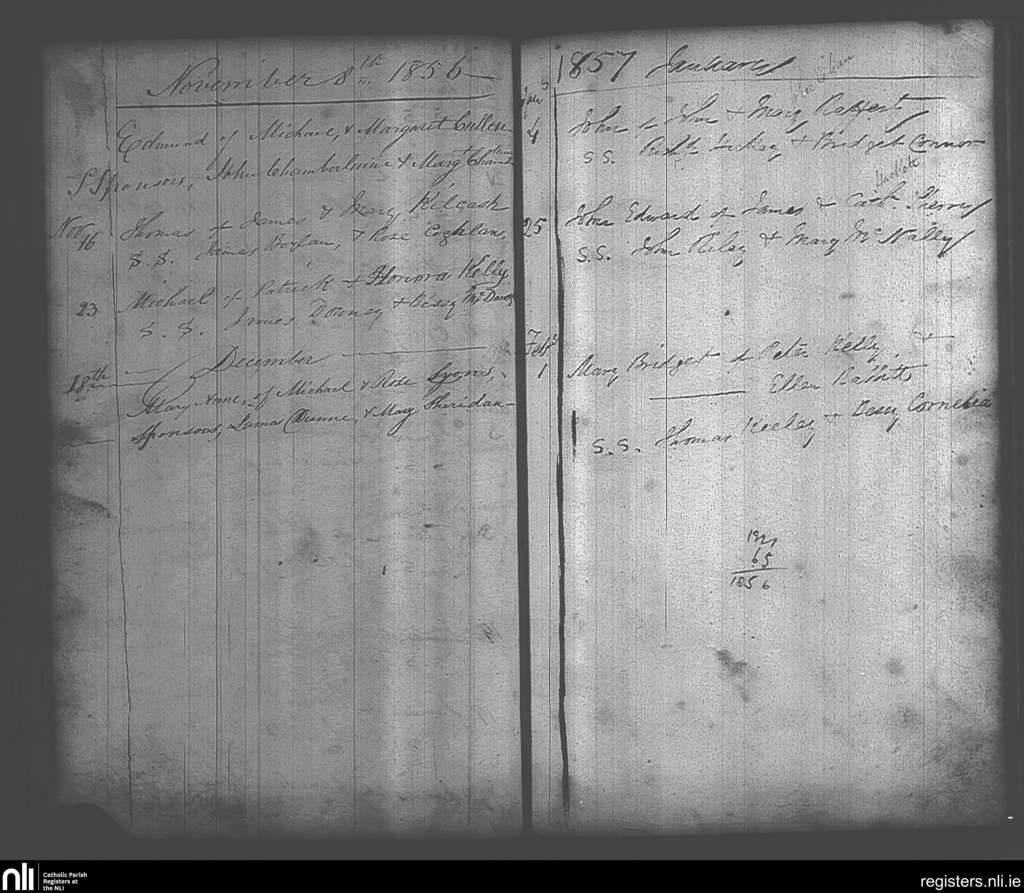 November 8th 1856
Edmund of Michael, & Margaret Cullen
Sponsors, John Chamberlaine & Margt
Nov 16 Thomas of James & Mary Kilcash
S. S. James & Rose Coghlan,
23 Michael of Patrick & Honora Kelly
S. S. James Downey & Bessy
December
18th
Mary Anne, of Michael & Rose Lyons,
Sponsors, James Dunne, & Mary Sheridan
1857 January
4 John of John & Mary Rafferty
S.S. & Bridget Connor
25 John Edward of James & Cath. Sherry
S.S. John Riley & Mary McNally
Feb 1 Mary Bridget of Peter Kelly, &
Ellen Babbitt
S.S. Thomas & Cornelia
65
1856
nli Catholic Parish
Registers at
the NLI
registers.nli.ie